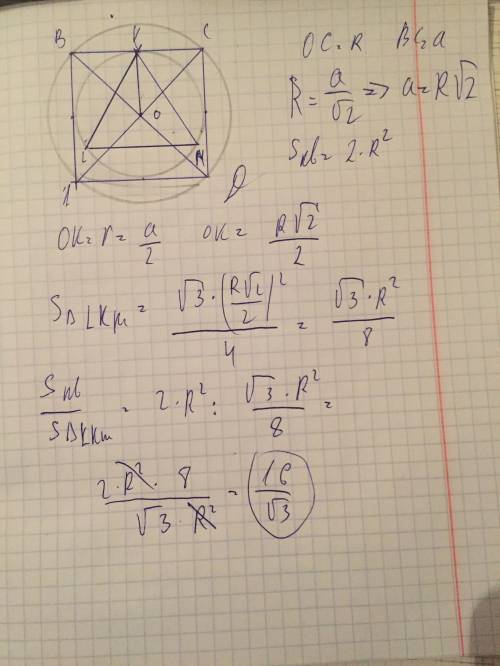 B K C
O
L M
A D
OC = R BC = a
R = a/√2 => a = R√2
Sкв = 2·R²
OK = r = a/2 OK = R√2/2
S∆LKM = √3·(R√2/2)²/4 = √3·R²/8
Sкв/S∆LKM = 2·R² : √3·R²/8 =
2·R²·8/√3·R² = 16/√3